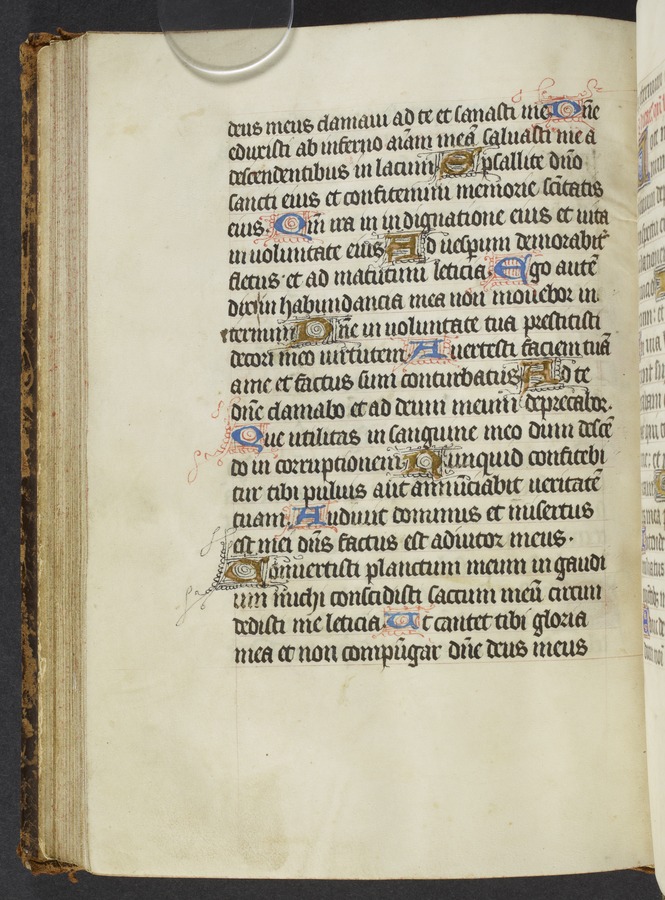 deus meus clamaui ad te et sanasti me Dñe
eduxisti ab inferno aīam meā saluasti me a
descendentibus in lacum Psallite dño
sancti eius et confitemini memorie sctitatis
eius. Qm̄ ira in indignatione eius et uita
in uoluntate eius Ad uesperum demorabit̄
fletus et ad matutinū leticia Ego autē
dixi in habundancia mea non mouebor in
eternum Dñe in uoluntate tua prestitisti
decori meo uirtutem Auertisti faciem tuā
a me et factus sum conturbatus Ad te
dñe clamabo et ad deum meum deprecabor.
Que utilitas in sanguine meo dum descē
do in corruptionem Nunquid confitebi
tur tibi puluis aut annūciabit ueritatē
tuam. Audiuit dominus et misertus
est mei dñs factus est adiutor meus.
Conuertisti planctum meum in gaudi
um michi conscidisti saccum meū circum
dedisti me leticia Ut cantet tibi gloria
mea et non compūgar dñe deus meus